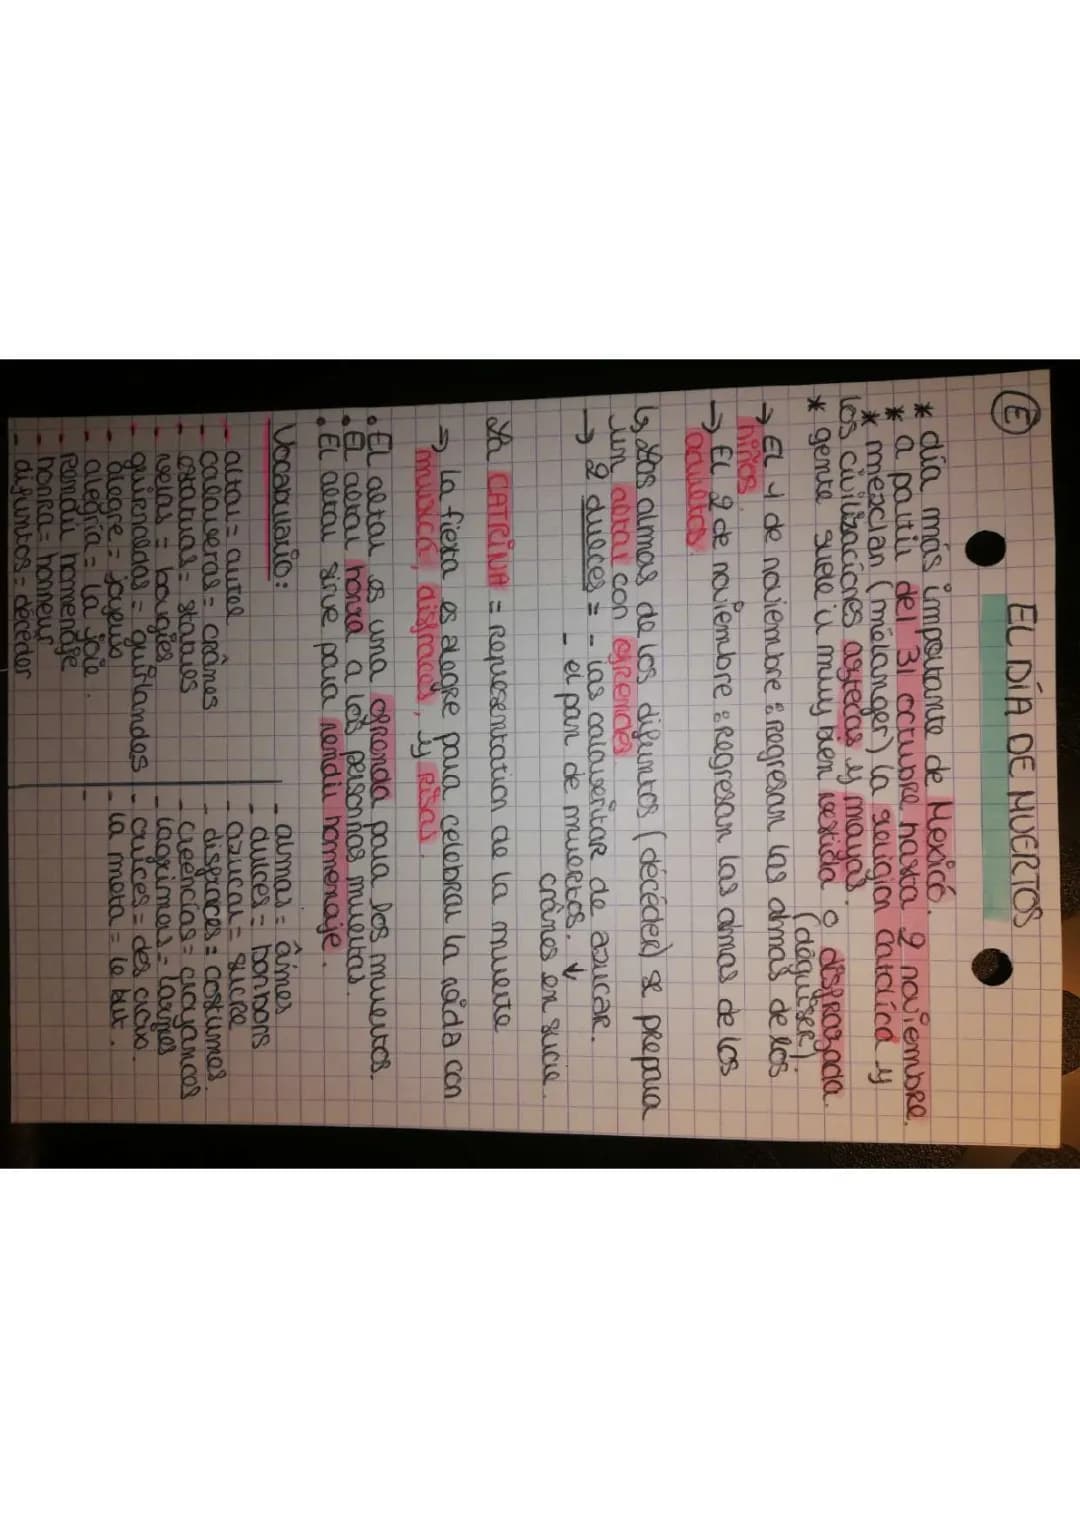 E
EL DÍA DE MUERTOS
* día más importante de Mexicó.
* a partir del 31 octubre hasta 2 noviembre.
* mezclan (mélanger) la religion católica y
los civilizaciones aztecas y mayas.
* gente suele ir muy bien vestida o disfrazada.
(déguiser)
→ EL 1 de noviembre : regresan las almas de los
niños.
→ EL 2 de noviembre : regresan las almas de los
adultos.
↳ Las almas de los difuntos (décéder) se prepara
un altar con ofrendas
→ 2 dulces = - las calaveritar de azucar.
- el pan de muertos. ↓
crânes en sucre.
La CATRINA = representation de la muerte
→ la fiesta es alegre para celebrar la vida con
musica, disfraces, y risas.
• El altar es una ofrenda para los muertos.
• El altar honra a los personas muertas.
• El altar sirve para rendir hommenaje.
Vocabulario:
- altar = autel
- calaveras = crânes
- estatuas = statues
- velas = bougies
- guirnaldas = guirlandes
- alegre = joyeux
- alegría = la joie.
- rendir hommenaje
- honra = honneur
- difuntos = décéder
- almas = âmes
- dulces = bonbons
- azucar = sucre
- disfraces = costumes
- creencias = croyances
- lagrimas = larmes
- cruces = des croix.
- la meta = le but.